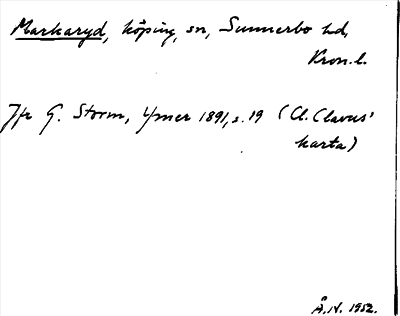 Markaryd, köping, sn, Sunnerbo hd,
Kron. l.
Jfr G. Storm, Ymer 1891, s. 19 (Cl. Clavus'
karta)
Å.N. 1952.